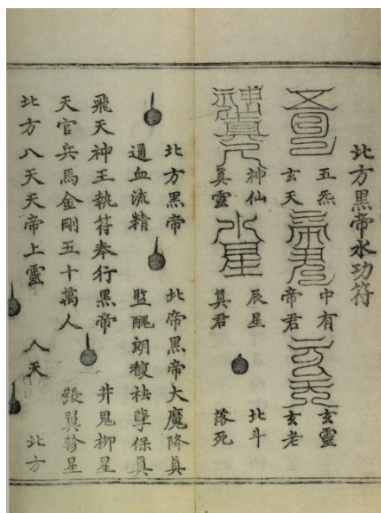 北方黑帝水功符
五炁 中有 玄靈
玄天 帝君 玄老
神仙 辰星 北斗
真靈 水星 真君 落死
北方黑帝 北帝黑帝大魔降真
通血流精 監醜朗馥祛孽保真
飛天神王執符奉行黑帝 井鬼柳星
天官兵馬金剛五十萬人 張翼軫星
北方八天天帝上靈 八天 北方